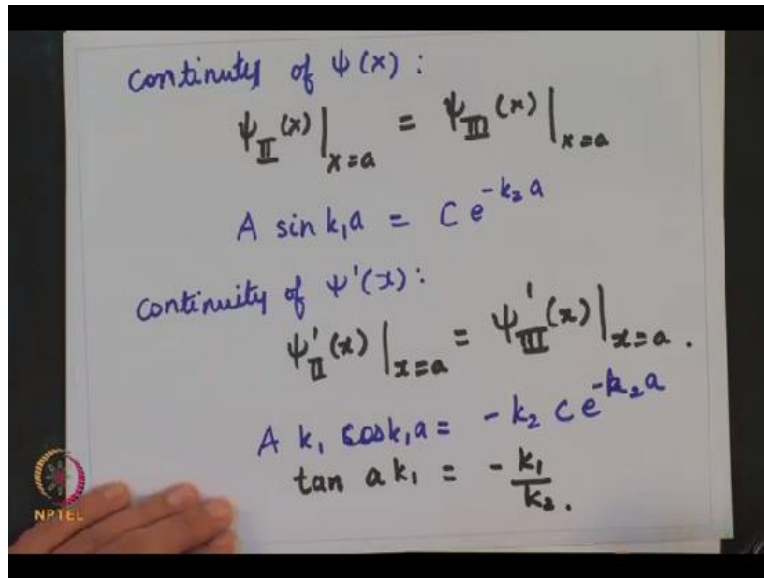 continuity of ψ(x) :
ψ_II(x)|_{x=a} = ψ_III(x)|_{x=a}
A sin k₁a = C e^{-k₂a}
continuity of ψ'(x) :
ψ'_II(x)|_{x=a} = ψ'_III(x)|_{x=a} .
A k₁ cosk₁a = -k₂ C e^{-k₂a}
tan a k₁ = - k₁/k₂ .
NPTEL